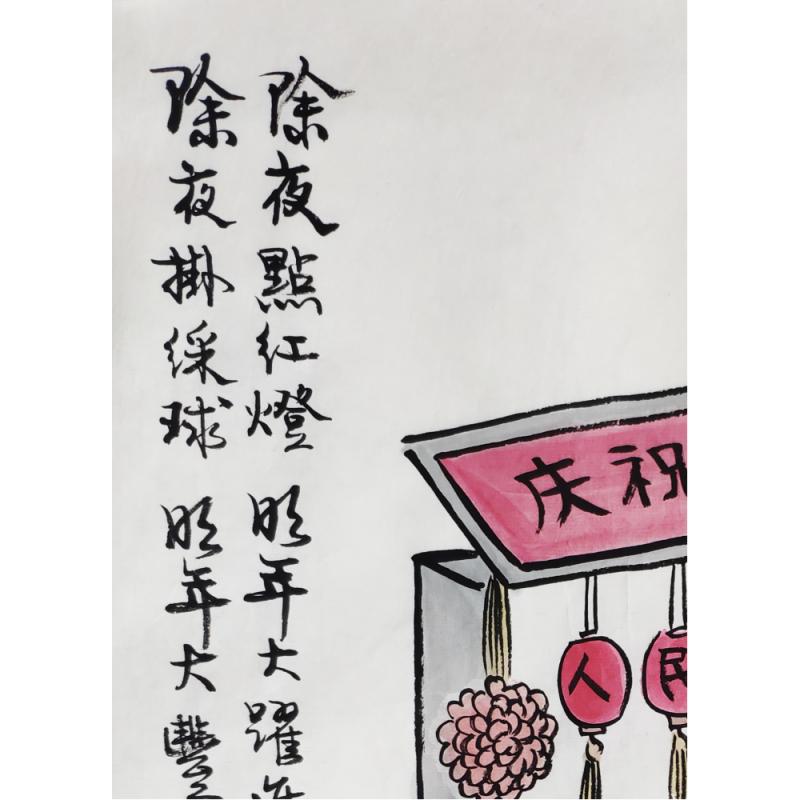 除夜點红燈 明年大躍
除夜掛綵球 明年大豐
庆祝
人民